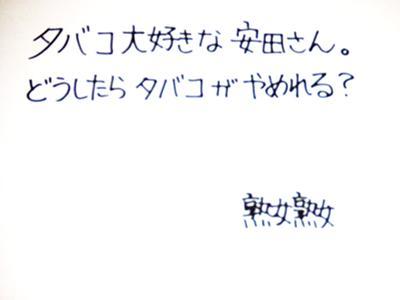 タバコ大好きな安田さん。
どうしたらタバコがやめれる？
熟女熟女